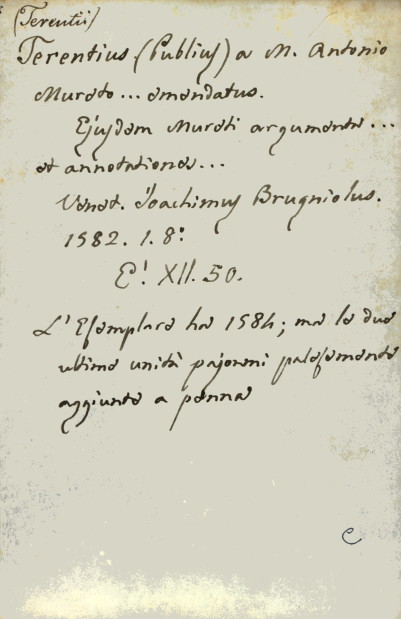 (Terentii)
Terentius (Publius) a M. Antonio
Mureto... emendatus.
Ejusdem Mureti argumenta...
et annotationes...
Venet. Joachimus Brugniolus.
1582. 1. 8º
E! XII. 50.
L'Esemplare ha 1584; ma le due
ultime unità pajonmi palesemente
aggiunte a penna
C